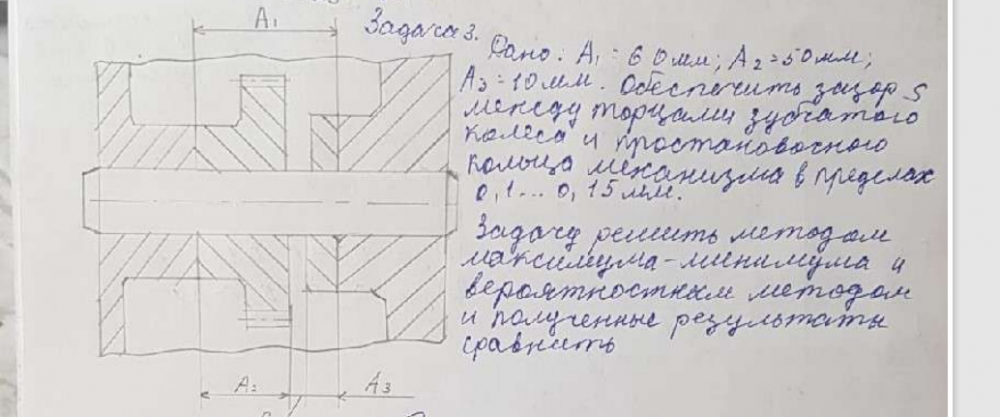 A₁
Задача 3.
Дано: A₁ = 60 мм; A₂ = 50 мм;
A₃ = 10 мм. Обеспечить зазор S
между торцами зубчатого
колеса и простановочного
кольца механизма в пределах
0,1... 0,15 мм.
Задачу решить методом
максимума-минимума и
вероятностным методом
и полученные результаты
сравнить
A₂
A₃